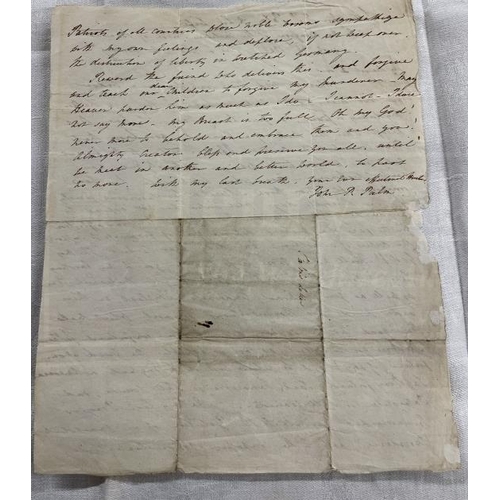 Patriots of all countries whose noble bosoms sympathize
with my own feelings and deplore, if not weep over
the destruction of liberty in wretched Germany.
Reward the friend who delivers this - and forgive
and teach our dear Children to forgive my murderer. May
Heaven pardon him as much as I do. I cannot - I dare
not say more. my Breast is too full. Oh my God!
never more to behold and embrace them and you!
Almighty Creator bless and preserve you all. until
we meet in another and better World. to part
no more. With my last breath. your own affectionate
John P. Palm